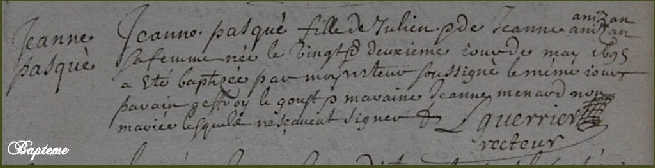 Jeanne pasquè
Jeanne pasquè fille de Julien & de Jeanne
sa femme née le vingt & deuxième iour de may 1695
a été baptizée par moy recteur soussigné le même iour
parain geffroy le goust & maraine Jeanne menard non
mariée lesquels ne sçavent signer
Lguerrier
recteur
Bapteme